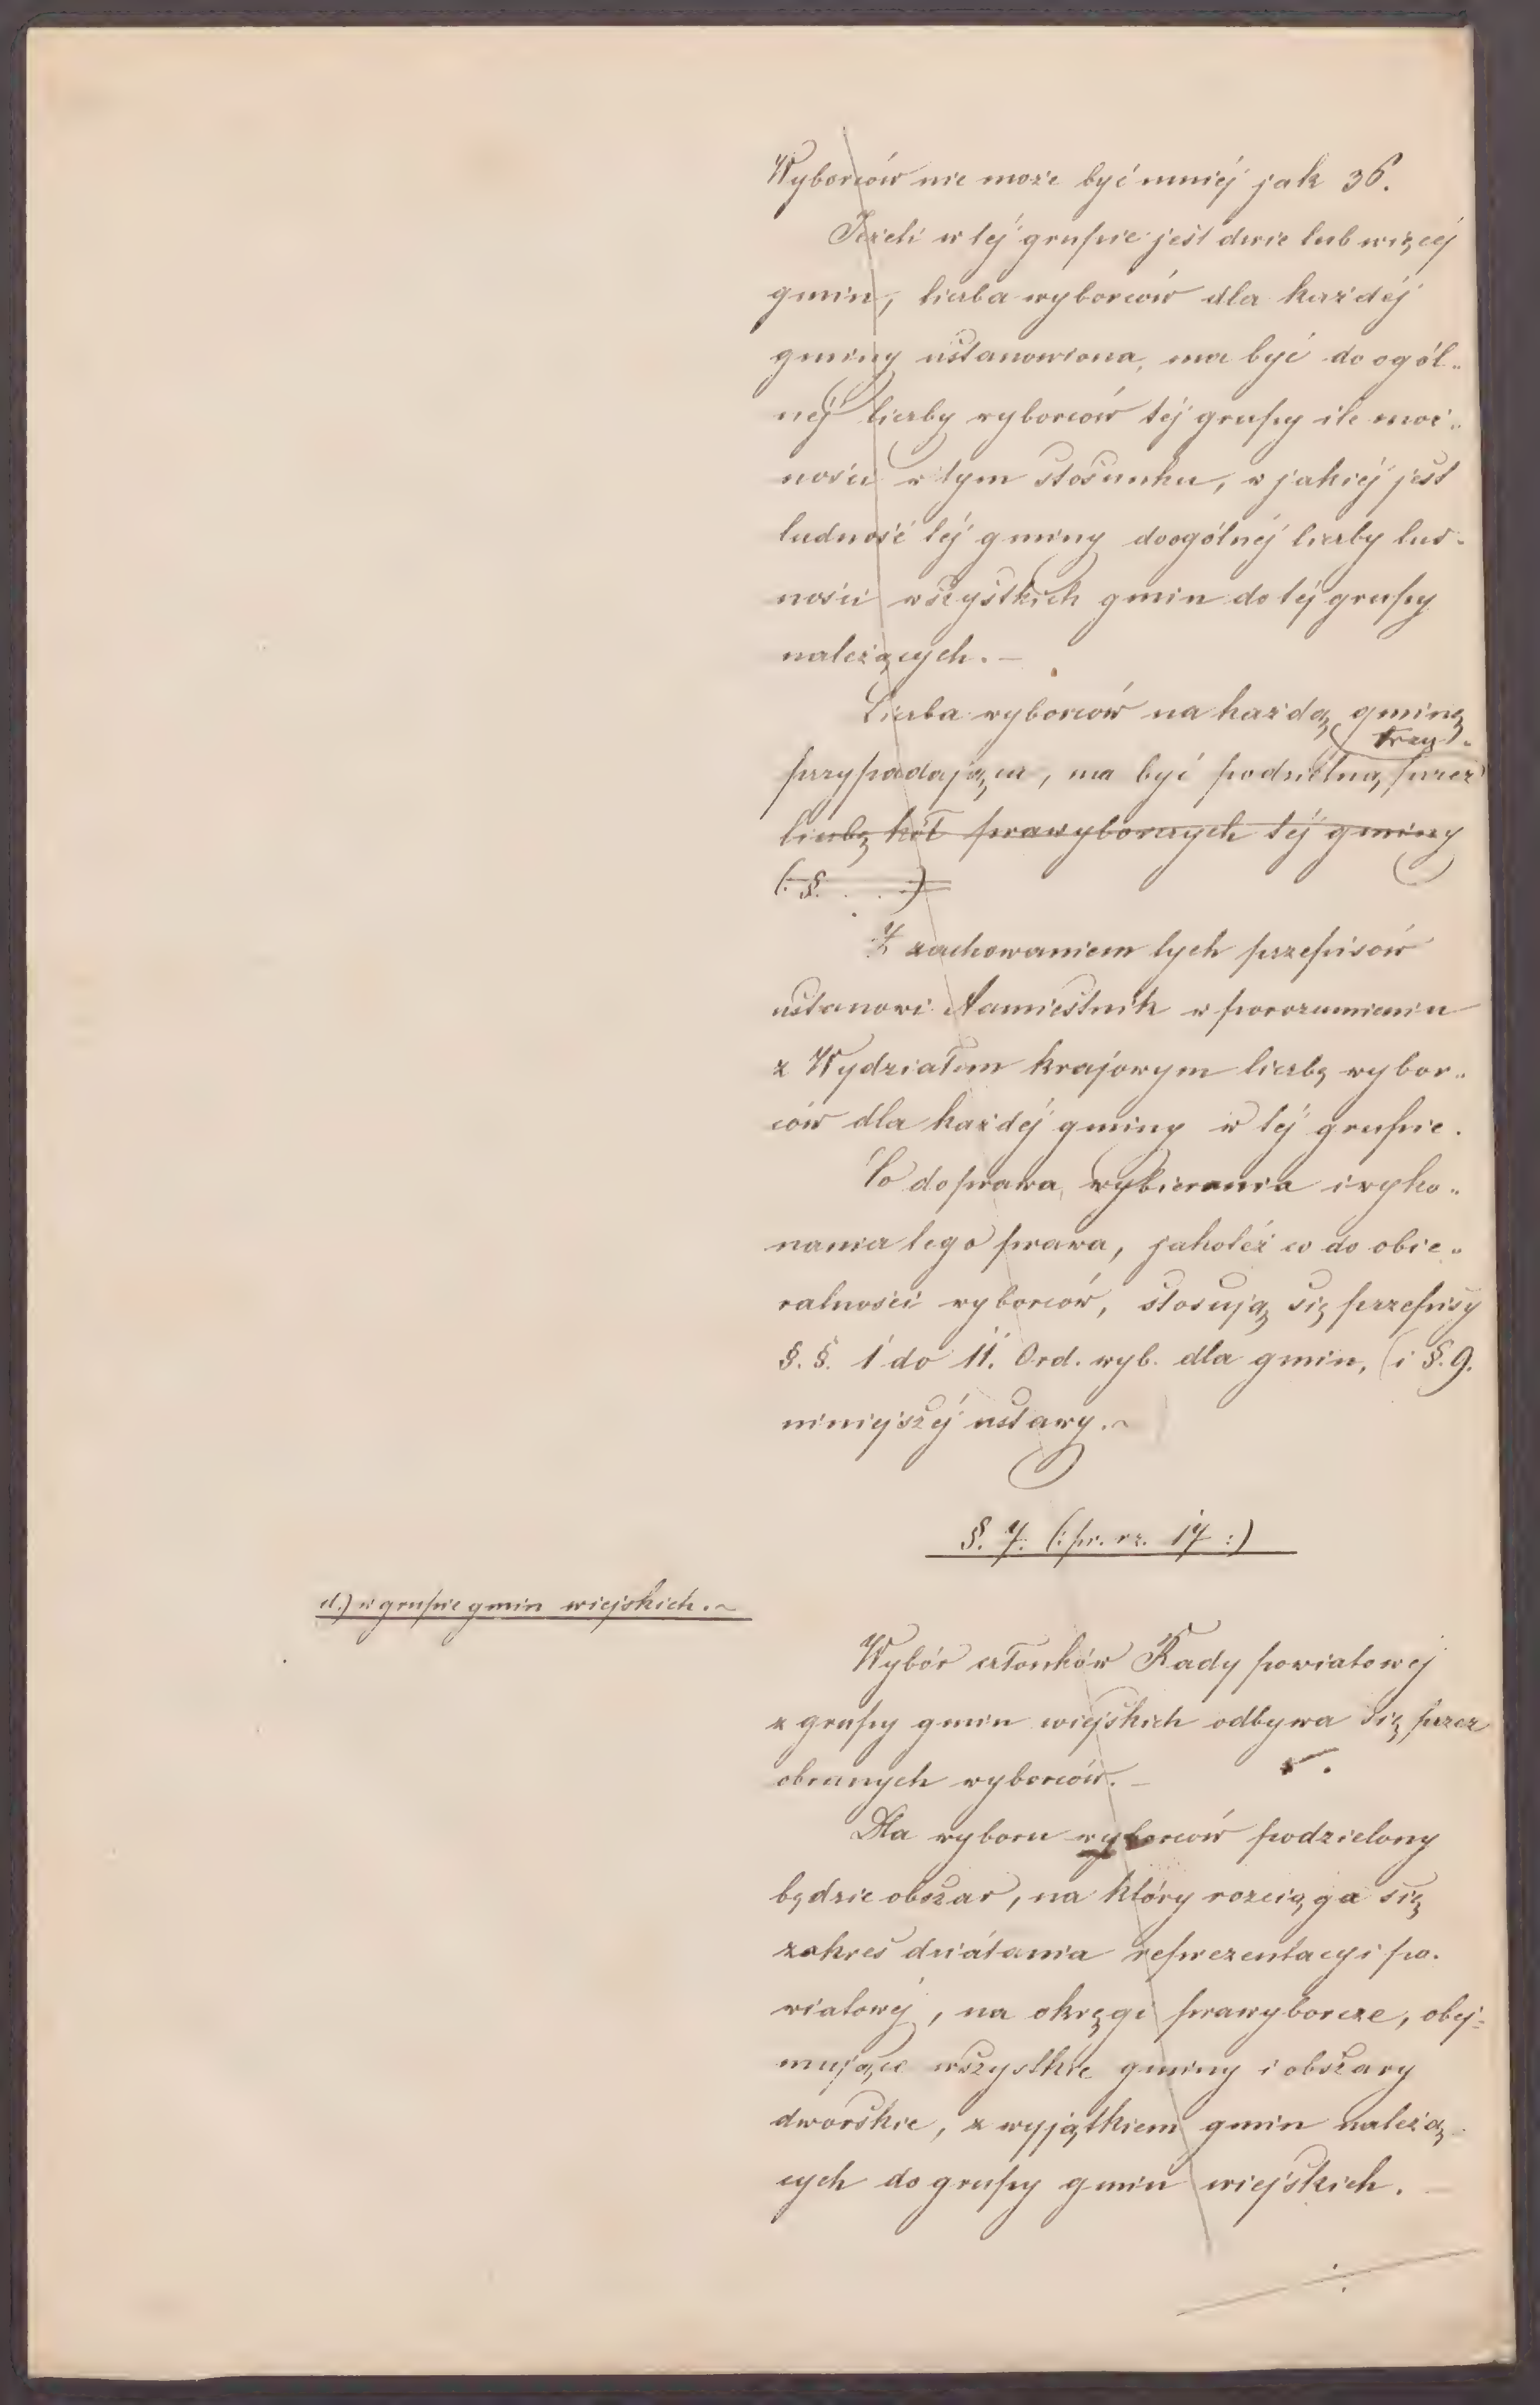 Wyborców nie może być mniéj jak 36.
Jeżeli w téj grupie jest dwie lub więcéj
gmin, liczba wyborców dla każdéj
gminy ustanowiona, ma być do ogól„
néj liczby wyborców téj grupy ile moż„
ności w tym stosunku, w jakiéj jest
ludność téj gminy do ogólnéj liczby lud-
ności wszystkich gmin do téj grupy
należących. —
Liczba wyborców na każdą gminę
trzy
przypadająca, ma być podzielną przez
liczbę kół prawyborczych téj gminy
(: §. . . )
Z zachowaniem tych przepisów
ustanowi Namiestnik w porozumieniu
z Wydziałem krajowym liczbę wybor„
ców dla każdéj gminy w téj grupie.
Co do prawa wybierania i wyko„
nania tego prawa, jakoteż co do obie„
ralności wyborców, stosują się przepisy
§. §. 1 do 11. Ord. wyb. dla gmin, (i §. 9.
niniejszéj ustawy. ~
§. 7. (: pr. rz. 17 :)
d.) w grupie gmin wiejskich. ~
Wybór członków Rady powiatowej
z grupy gmin wiejskich odbywa się przez
obranych wyborców. —
Dla wyboru wyborców podzielony
będzie obszar, na który rozciąga się
zakres działania reprezentacyi po-
wiatowéj, na okręgi prawyborcze, obej=
mujące wszystkie gminy i obszary
dworskie, z wyjątkiem gmin należą
cych do grupy gmin wiejskich. —